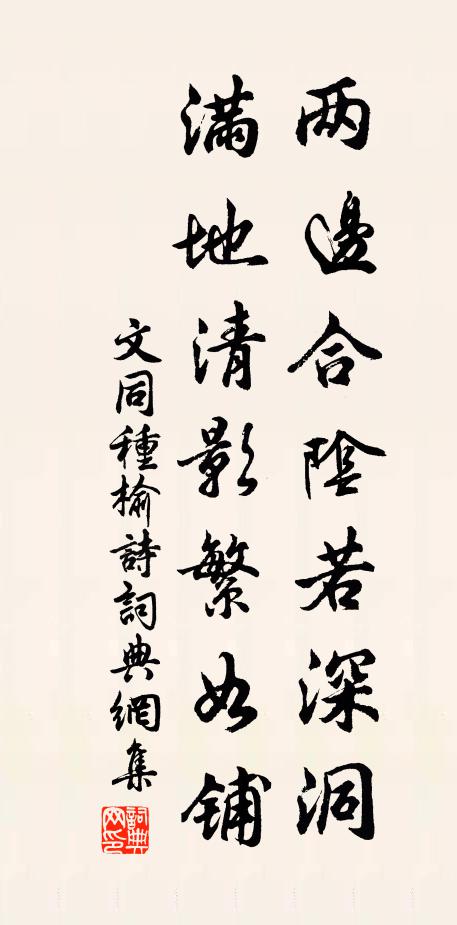 两邊合陰若深洞
滿地清影繁如鋪
文同種榆詩詞典網集
詞典
网印